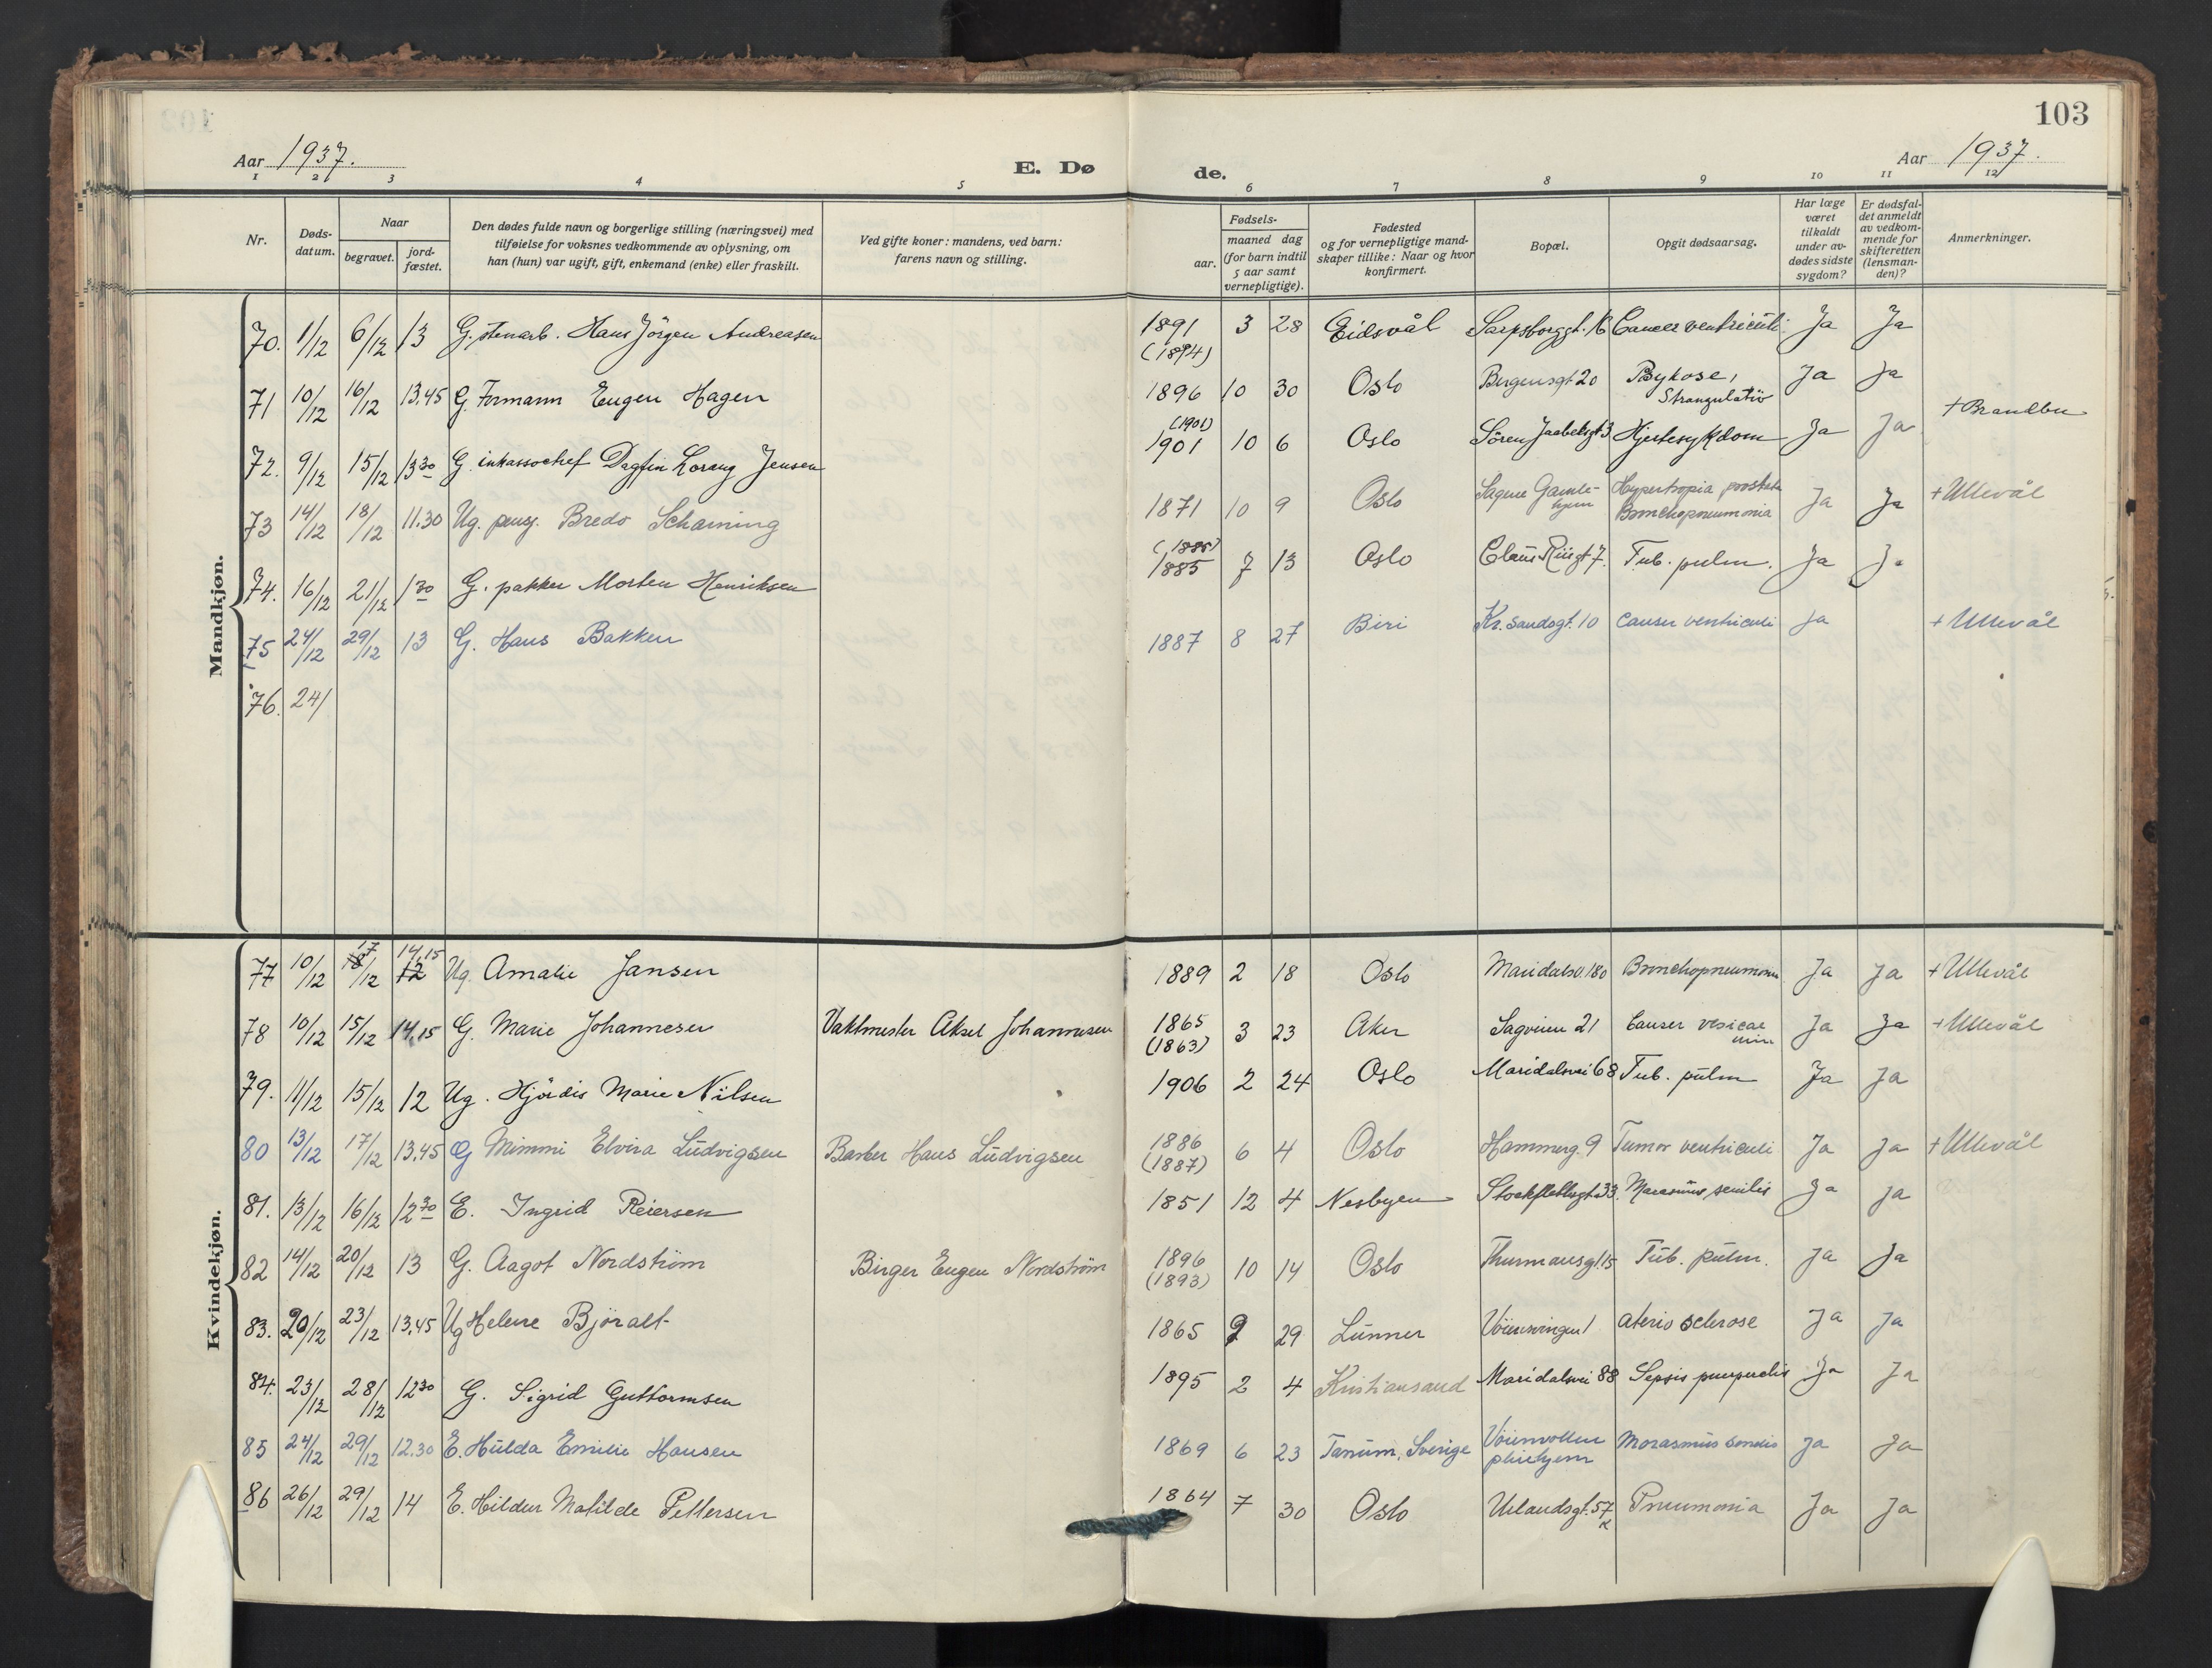 103
Aar 1937.
E. Dø
de.
Aar 1937.
1 2 3 4 5 6 7 8 9 10 11 12
Nr.
Døds-
datum.
Naar
begravet.
jord-
fæstet.
Den dødes fulde navn og borgerlige stilling (næringsvei) med
tilføielse for voksnes vedkommende av oplysning, om
han (hun) var ugift, gift, enkemand (enke) eller fraskilt.
Ved gifte koner: mandens, ved barn:
farens navn og stilling.
Fødsels-
aar.
maaned dag
(for barn indtil
5 aar samt
vernepligtige).
Fødested
og for vernepligtige mand-
skaper tillike: Naar og hvor
konfirmert.
Bopæl.
Opgit dødsaarsag.
Har læge
været
tilkaldt
under av-
dødes sidste
sygdom?
Er dødsfal-
det anmeldt
av vedkom-
mende for
skifteretten
(lensman-
den)?
Anmerkninger.
Mandkjøn.
70. 1/12 6/12 13 G. stenarb. Hans Jörgen Andreasen 1891 (1894) 3 28 Eidsvål Sarpsborggt. 16 Cancer ventriculi Ja Ja
71 10/12 16/12 13.45 G. Formann Eugen Hagen 1896 10 30 Oslo Bergensgt 20 Psykose, Strangulatio Ja Ja
72. 9/12 15/12 13 30 G. inkassochef Dagfin Lorang Jensen (1901) 1901 10 6 Oslo Sören Jaabeksgt 3 Hjertesykdom Ja Ja + Brandbu
73 14/12 18/12 11.30 Ug. pensj. Bredo Scharning 1871 10 9 Oslo Sagene Gamle-hjem Hypertropia prostata Bronchopneumonia Ja Ja + Ullevål
74. 16/12 21/12 1 30 G. pakker Morten Henriksen (1885) 1885 7 13 Oslo Claus Riisgt 7. Tub. pulm. Ja Ja
75 24/12 29/12 13 G. Hans Bakken 1887 8 27 Biri Kr.sandsgt. 10 Canser ventriculi Ja + Ullevål
76. 24/
Kvindekjøn.
77 10/12 18 17/12 12 14.15 Ug. Amalie Jansen 1889 2 18 Oslo Maridalsv. 180 Bronchopneumoni Ja Ja + Ullevål
78 10/12 15/12 14.15 G. Marie Johannesen Vaktmester Aksel Johannesen 1865 (1863) 3 23 Aker Sagveien 21 Canser vesicae Ja Ja + Ullevål
79. 11/12 15/12 12 Ug. Hjördis Marie Nilsen 1906 2 24 Oslo Maridalsvei 68 Tub. pulm Ja Ja
80 13/12 17/12 13.45 G Mimmi Elvira Ludvigsen Barber Hans Ludvigsen 1886 (1887) 6 4 Oslo Hammerg. 9 Tumor ventriculi Ja Ja + Ullevål
81. 13/12 16/12 12 30 E. Ingrid Reiersen 1851 12 4 Nesbyen Stockflethsgt 33. Marasmus senilis Ja Ja
82 14/12 20/12 13 G. Aagot Nordström Birger Eugen Nordström 1896 (1893) 10 14 Oslo Thurmansgt. 15 Tub. pulm. Ja Ja
83. 20/12 23/12 13.45 Ug Helene Björalt 1865 9 29 Lunner Vöiensvingen 1 Aterio sclerose Ja Ja
84. 23/12 28/12 12 30 G. Sigrid Guttormsen 1895 2 4 Kristiansand Maridalsvei 88 Sepsis puerperalis Ja Ja
85 24/12 29/12 12.30 E. Hulda Emilie Hansen 1869 6 23 Tanum, Sverige Vöienvollen pleiehjem Morasmus senilis Ja Ja
86 26/12 29/12 14 E. Hildur Matilde Pettersen 1864 7 30 Oslo Uelandsgt. 57 Pneumonia Ja Ja